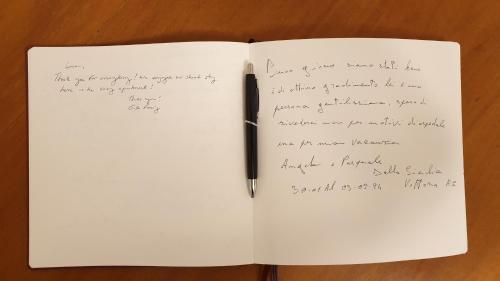 Thank you for everything! We enjoyed our short stay
here in the cozy apartment!
Thank you!
Buon giorno siamo stati bene
di ottimo gradimento lei è una
persona gentilissima, spero di
rivederci non per motivi di ospedale
ma per una vacanza
Angela e Pasquale
Dalla Sicilia
Vittoria RG